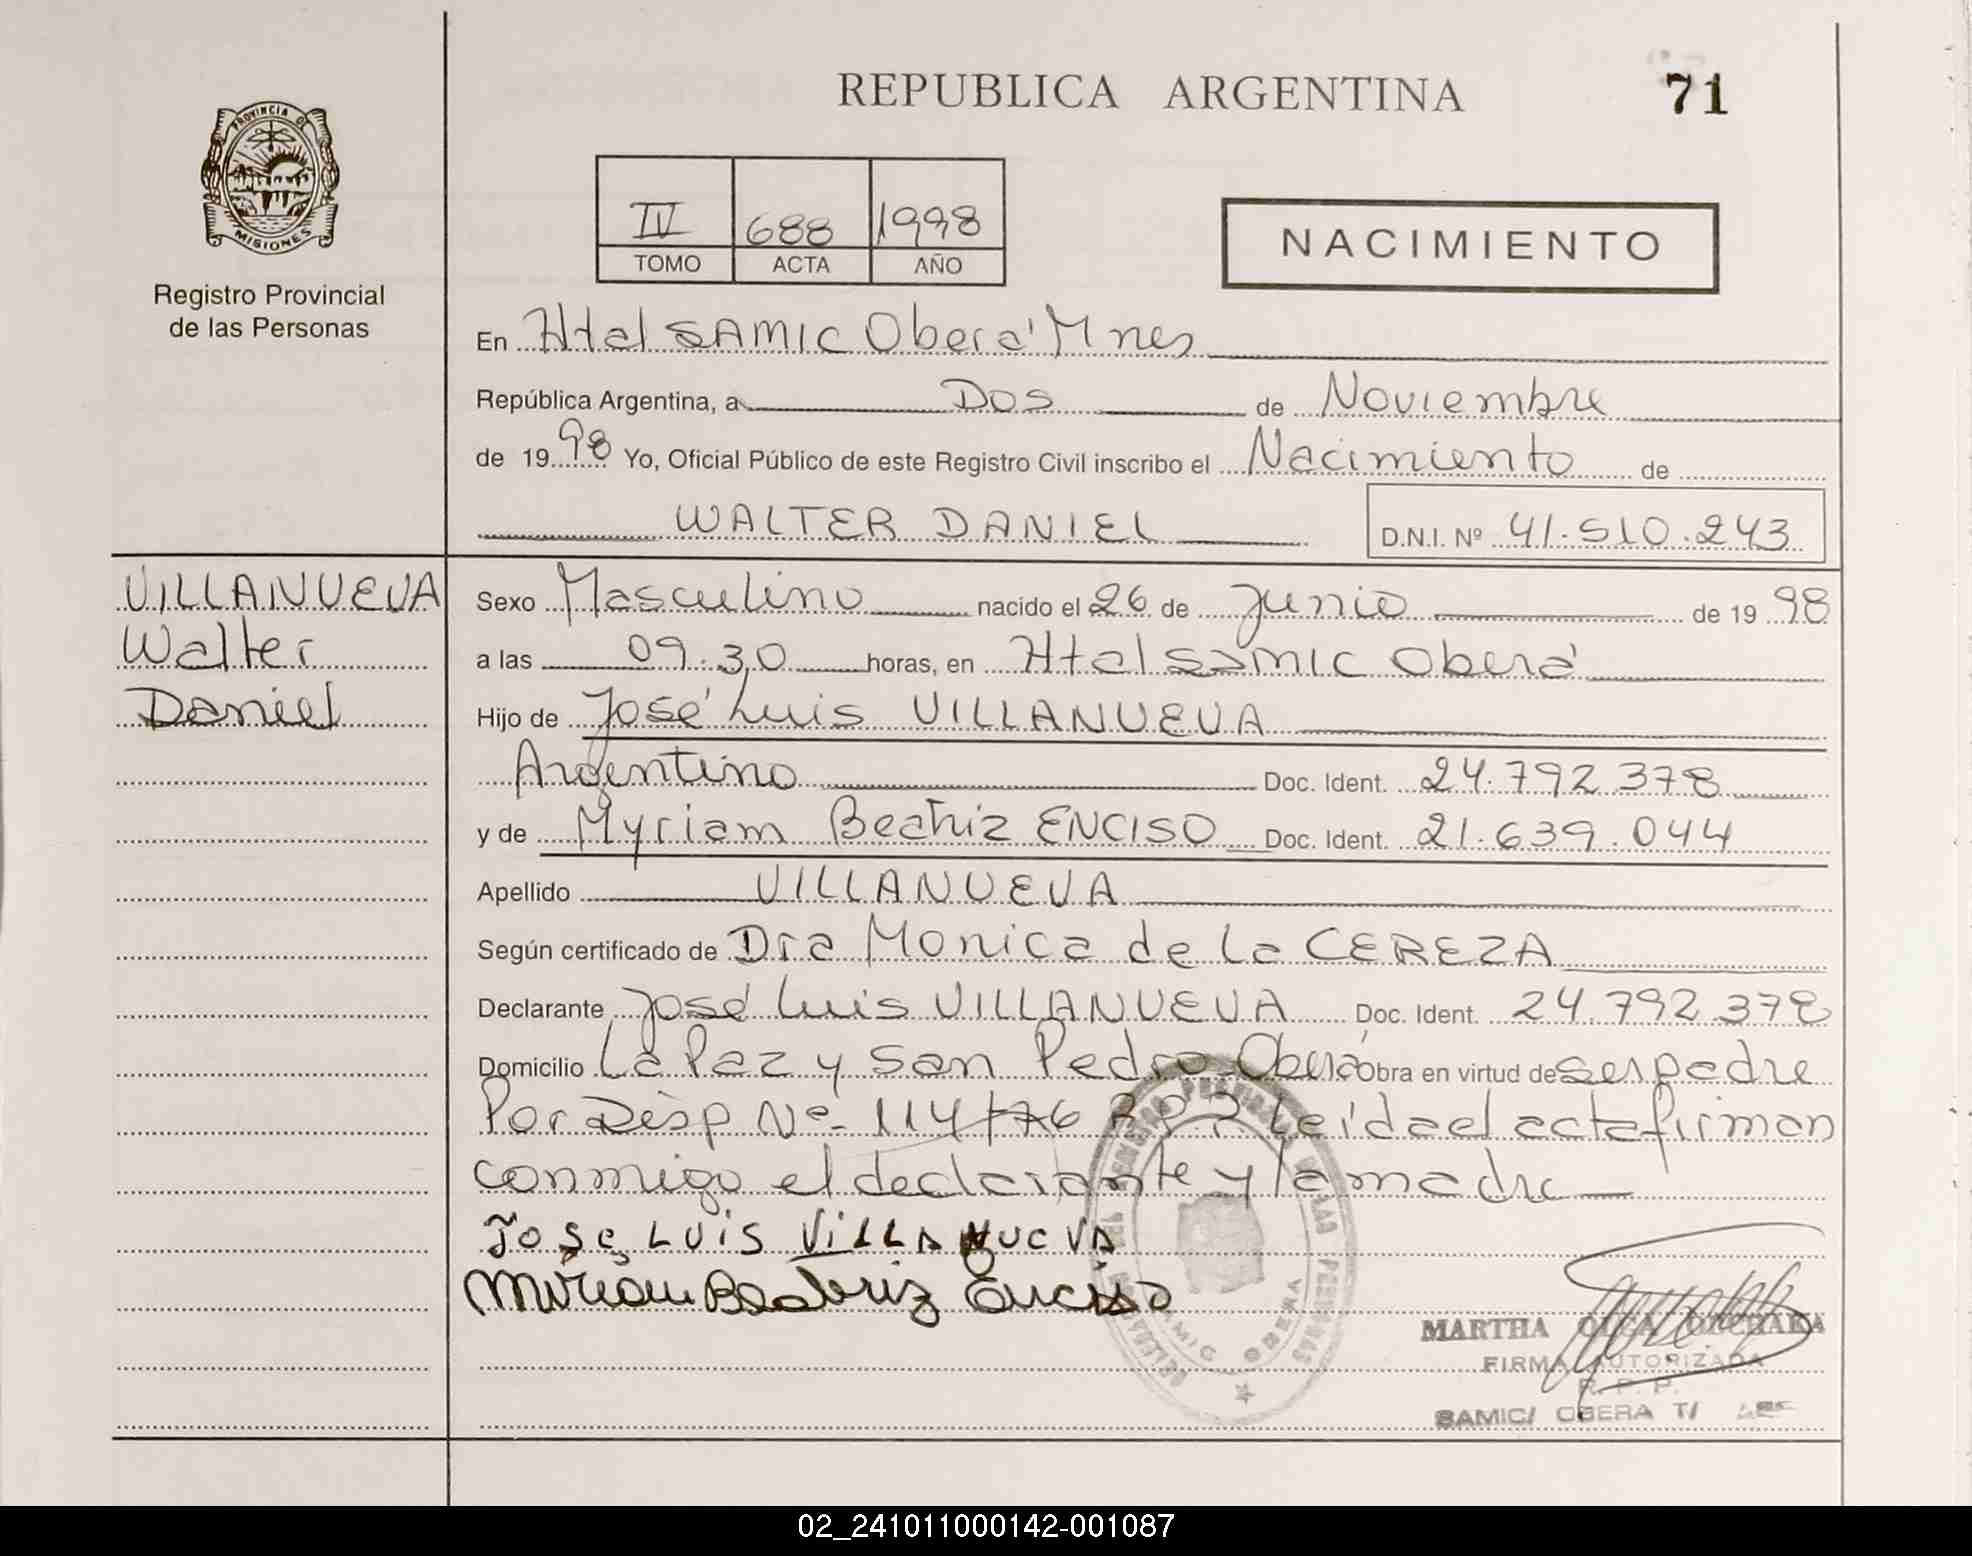 REPUBLICA ARGENTINA
71
PROVINCIA DE
MISIONES
Registro Provincial
de las Personas
IV 688 1998
TOMO ACTA AÑO
NACIMIENTO
En Htal SAMIC Oberá Mnes
República Argentina, a Dos de Noviembre
de 1998 Yo, Oficial Público de este Registro Civil inscribo el Nacimiento de
WALTER DANIEL D.N.I. Nº 41.510.243
VILLANUEVA
Walter
Daniel
Sexo Masculino nacido el 26 de Junio de 1998
a las 09.30 horas, en Htal SAMIC Oberá
Hijo de José Luis VILLANUEVA
Argentino Doc. Ident. 24.792.378
y de Myriam Beatriz ENCISO Doc. Ident. 21.639.044
Apellido VILLANUEVA
Según certificado de Dra Monica de la CEREZA
Declarante José Luis VILLANUEVA Doc. Ident. 24.792.378
Domicilio La Paz y San Pedro Oberá Obra en virtud de ser padre
Por Disp Nº 114/76 R.P.P Leída el acta firman
conmigo el declarante y la madre
JOSE LUIS VILLANUEVA
Miriam Beatriz Enciso
MARTHA
FIRMA AUTORIZADA
R. P. P.
SAMIC/ OBERA T/
SAMIC OBERA
02_241011000142-001087